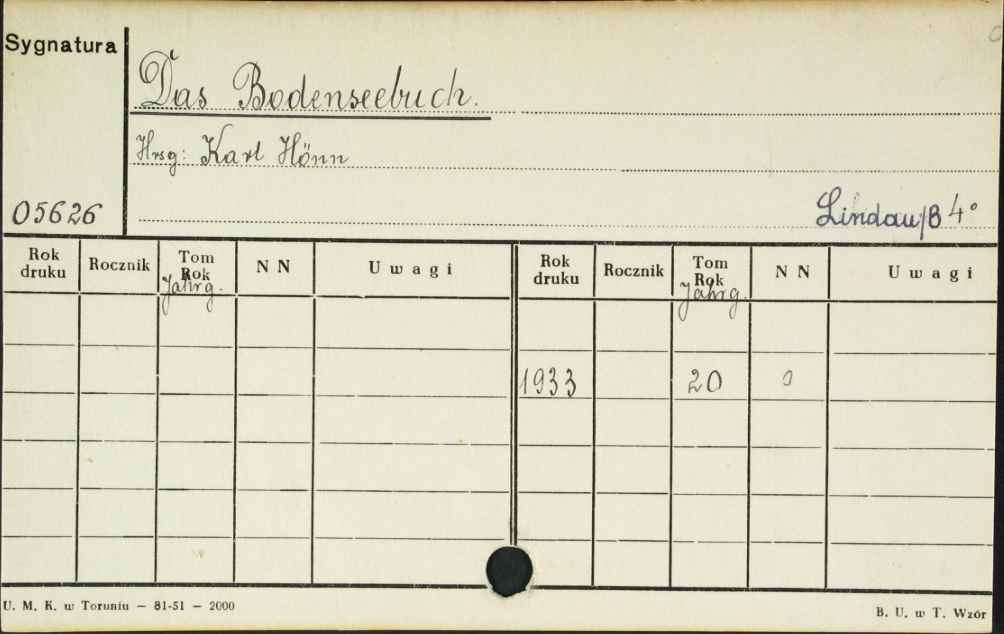 Sygnatura
Das Bodenseebuch.
Hrsg: Karl Hönn
05626
Lindau/B 4°
Rok druku Rocznik Tom Rok Jahrg. N N Uwagi Rok druku Rocznik Tom Rok Jahrg. N N Uwagi
1933 20 0
U. M. K. w Toruniu — 81-51 — 2000
B. U. w T. Wzór